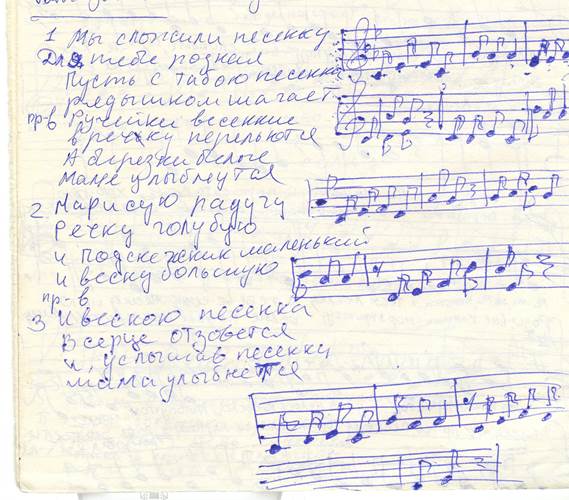 1 Мы сложили песенку
Для тебя родная
Пусть с табою песенка
рядышком шагает
пр-в Ручейки весенние
в речку перельются
А березки белые
Маме улыбнутся
2 Нарисую радугу
Речку голубую
и подснежник маленький
и весну большую
пр-в
3 И весною песенка
В серце отзовется
и, услышав песенку
мама улыбнется